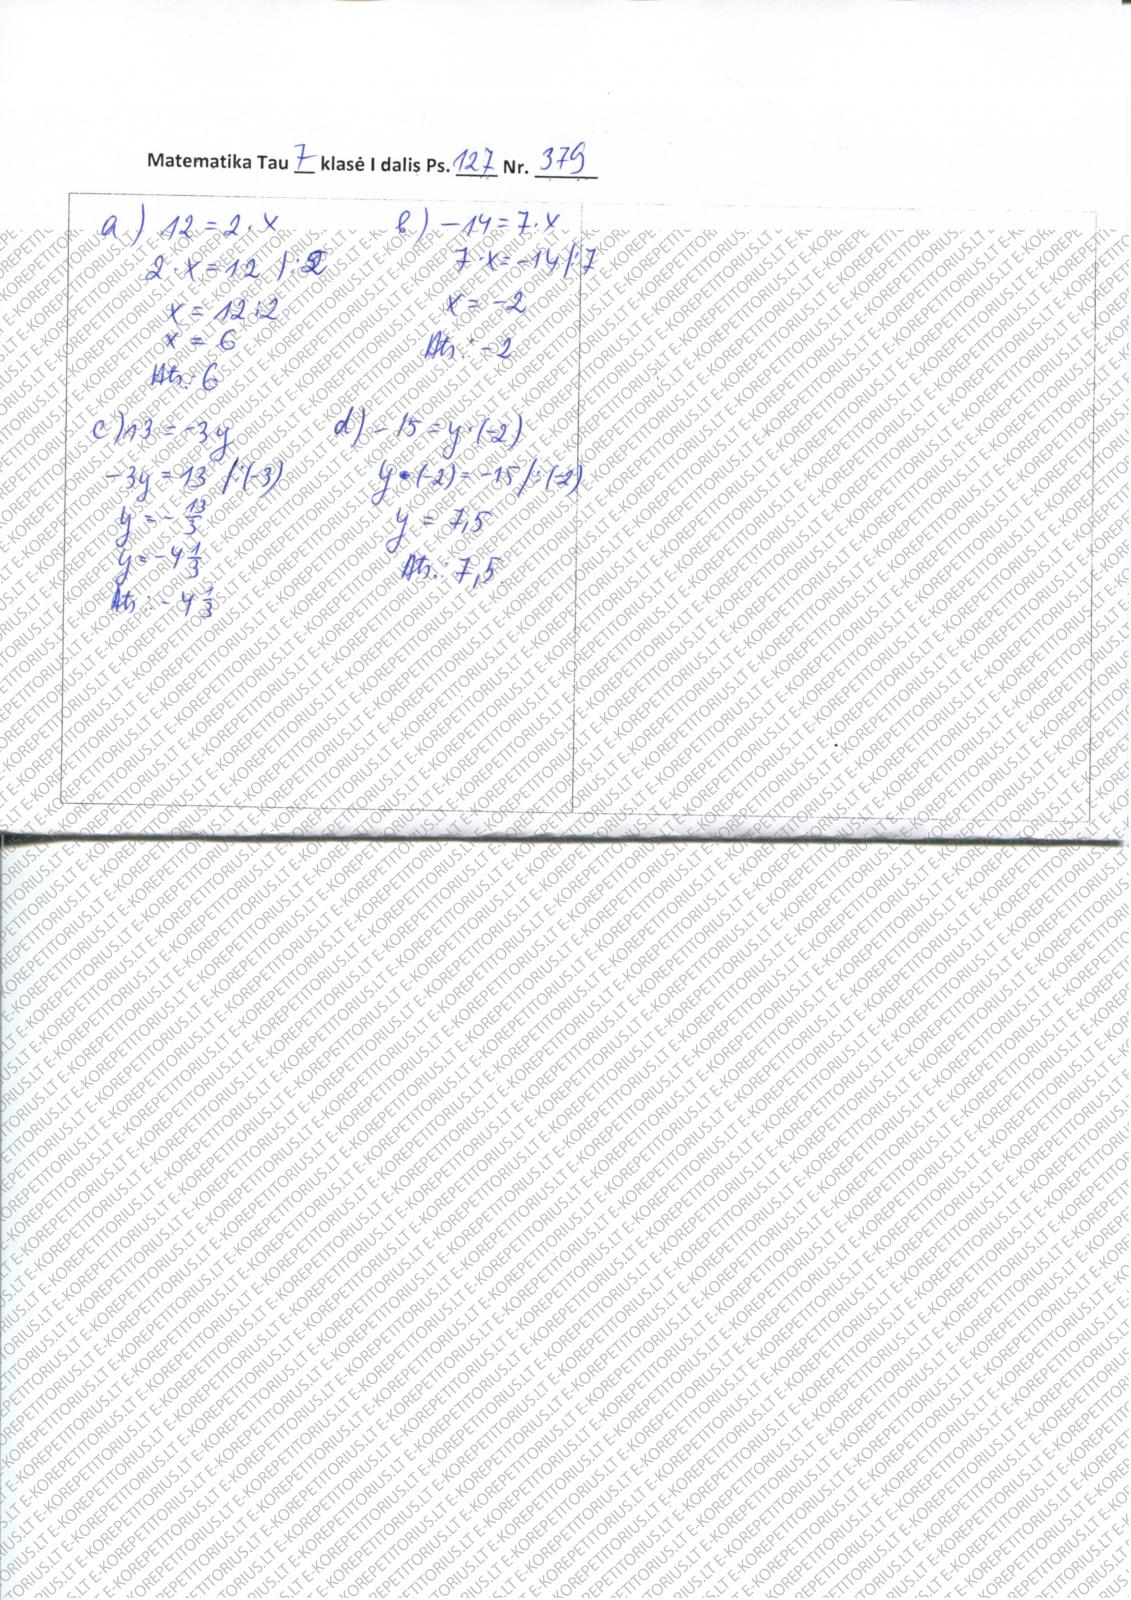 Matematika Tau 7 klasė I dalis Ps. 127 Nr. 379
a) 12 = 2 · x
2 · x = 12 /:2
x = 12:2
x = 6
Ats.: 6
b) -14 = 7 · x
7 · x = -14 /:7
x = -2
Ats.: -2
c) 13 = -3y
-3y = 13 /:(-3)
y = - 13/3
y = -4 1/3
Ats.: -4 1/3
d) -15 = y · (-2)
y · (-2) = -15 /:(-2)
y = 7,5
Ats.: 7,5
E-KOREPETITORIUS.LT